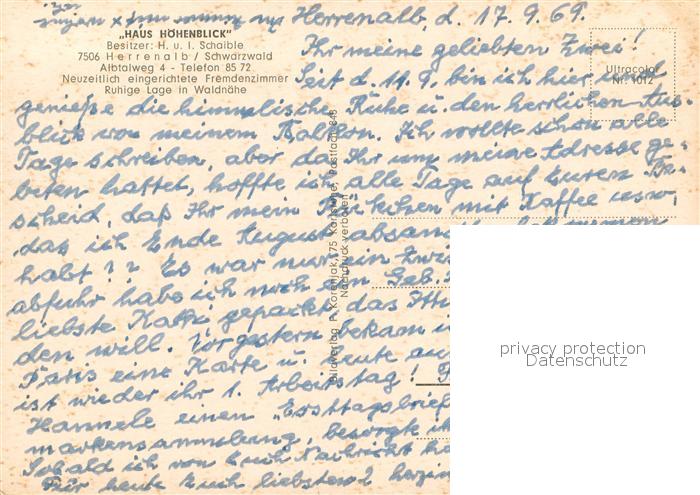 Herrenalb, d. 17. 9. 69.
„HAUS HÖHENBLICK"
Besitzer: H. u. I. Schaible
7506 Herrenalb / Schwarzwald
Albtalweg 4 - Telefon 85 72
Neuzeitlich eingerichtete Fremdenzimmer
Ruhige Lage in Waldnähe
Ultracolor
Nr. 1012
Ihr meine geliebten Zwei!
Seit d. 11. 9. bin ich hier und
genieße die himmlische Ruhe u. den herrlichen Aus
blick von meinem Balkon. Ich wollte schon alle
Tage schreiben, aber da Ihr um meine Adresse ge-
beten hattet, hoffte ich alle Tage auf Euren Be-
scheid, daß Ihr mein Päckchen mit Kaffee usw.
das ich Ende August
habt?? Es war nur ein
abfuhr habe ich noch ein Geb.
liebste Kathi gepackt, das
den will. Vorgestern bekam
Paris eine Karte u. heute
ist wieder ihr 1. Arbeitstag!
Hannele einen
markensammlung, besorgte
Sobald ich von Euch Nachricht
Für heute Euch liebsten 2
Bildverlag P. Korenjak, 75 Karlsruhe, Postfach 848
Nachdruck verboten
privacy protection
Datenschutz